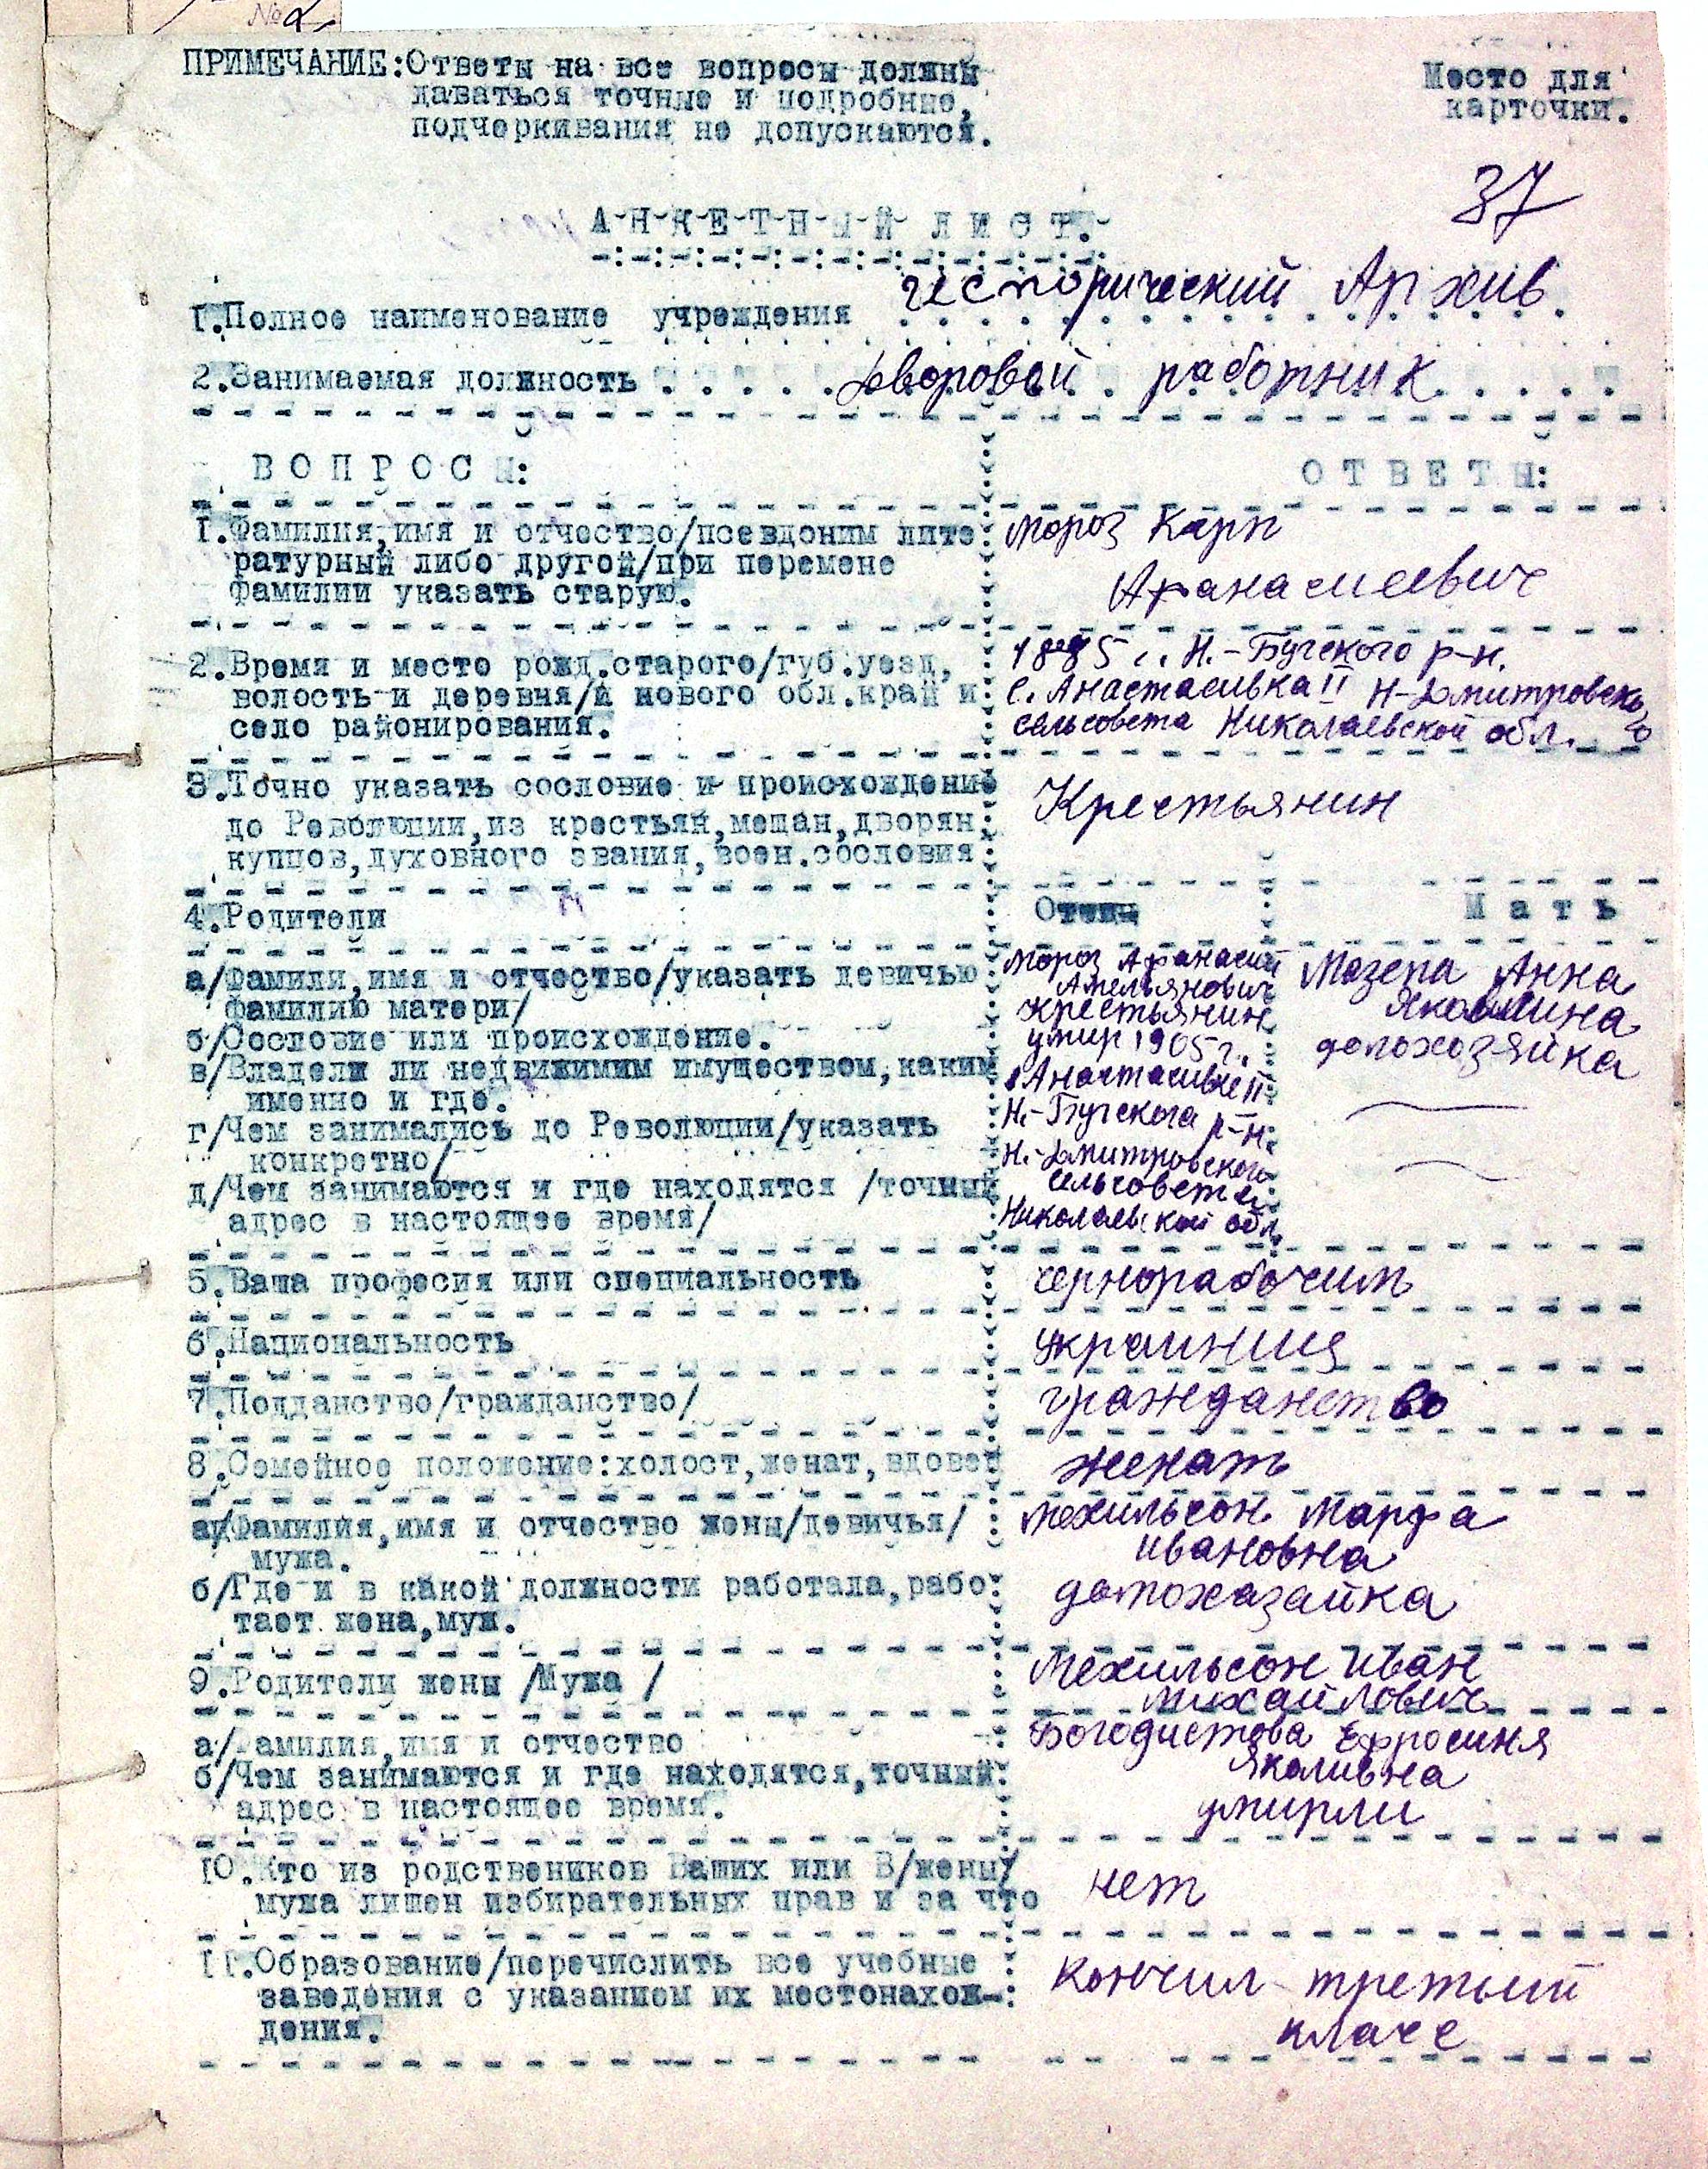 № 2
ПРИМЕЧАНИЕ: Ответы на все вопросы должны
даваться точные и подробные,
подчеркивания не допускаются.
Место для
карточки.
37
А-Н-К-Е-Т-Н-Ы-Й Л И С Т.
исторический Архив
1. Полное наименование учреждения . . . . . . . . . . .
2. Занимаемая должность . . . . . дворовой работник . . . .
В О П Р О С Ы:
О Т В Е Т Ы:
1. Фамилия, имя и отчество/псевдоним лите
ратурный либо другой/при перемене
фамилии указать старую.
Мороз Карп
Афанасиевич
2. Время и место рожд.старого/губ.уезд,
волость и деревня/и нового обл.край и
село районирования.
1885 г. Н.-Бугского р-н.
С. Анастасивка II Н-Дмитровского
сельсовета Николаевской обл.
3. Точно указать сословие и происхождение
до Революции, из крестьян, мещан, дворян
купцов, духовного звания, воен.сословия
Крестьянин
4. Родители
Отец
М а т ь
а/Фамили, имя и отчество/указать девичью
фамилию матери/
б/Сословие или происхождение.
в/Владели ли недвижимим имуществом, каким
именно и где.
г/Чем занимались до Революции/указать
конкретно/
д/Чем занимаются и где находятся /точный
адрес в настоящее время/
Мороз Афанасий
Амельянович
крестьянин
умир 1905 г.
в Анастасивке II
Н.-Бугского р-н.
Н.-Дмитровского
сельсовета
Николаевской обл.
Мазепа Анна
Якомина
домохозяйка
5. Ваша професия или специальность
чернорабочим
6. Национальность
украинця
7. Подданство/гражданство/
гражданство
8. Семейное положение: холост, женат, вдовец
женать
а/Фамилия, имя и отчество жены/девичья/
мужа.
б/Где и в какой должности работала, рабо
тает жена, муж.
Мехильсон Марфа
ивановна
домохазайка
9. Родители жены /Мужа /
Мехильсон Иван
михайлович
а/Фамилия, имя и отчество
б/Чем занимаются и где находятся, точный
адрес в настоящее время.
Богодистова Ефросиня
Якомивна
умирли
10. Кто из родствеников Ваших или В/жены/
мужа лишен избирательных прав и за что
нет
11. Образование/перечислить все учебные
заведения с указанием их местонахож-
дения.
кончил третьий
класс